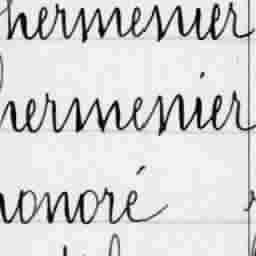 hermenier
hermenier
honoré